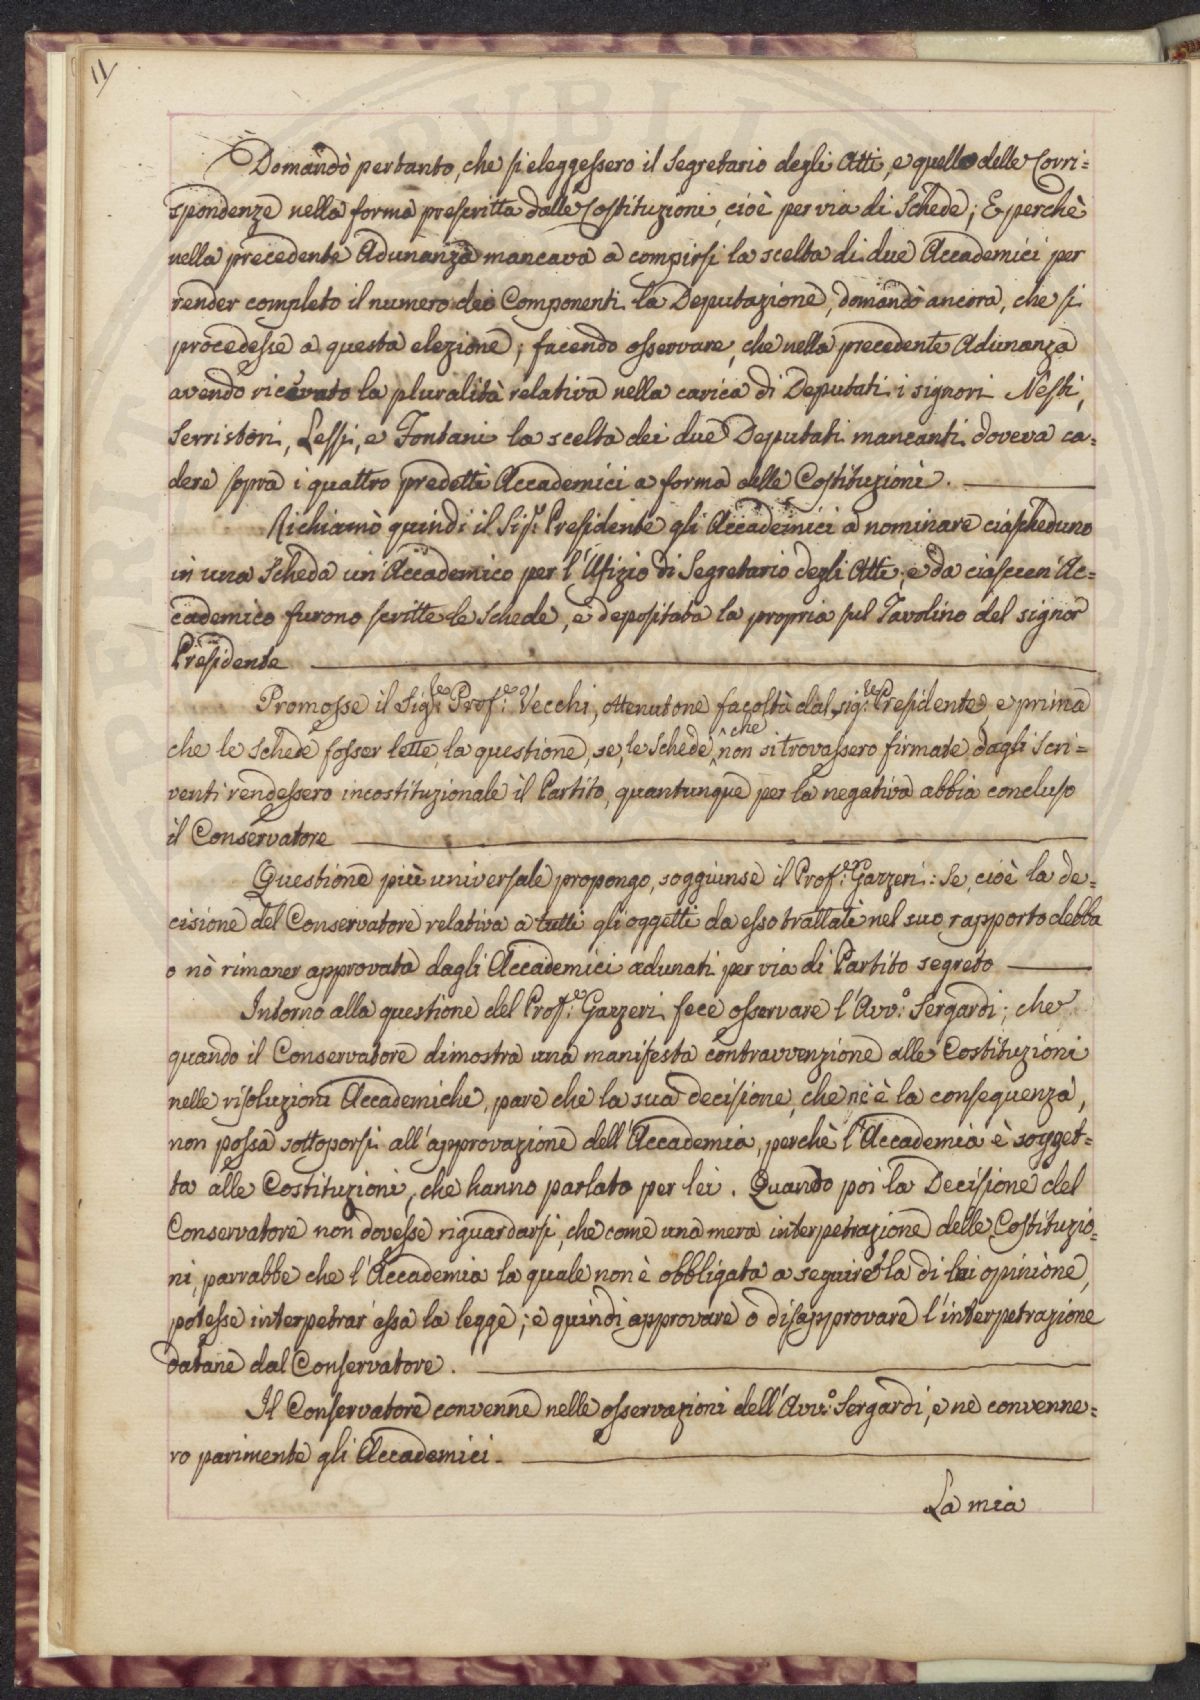 11
Domandò pertanto, che si eleggessero il Segretario degli Atti, e quello delle Corri=
spondenze nella forma prescritta dalle Costituzioni, cioè per via di Schede; E perchè
nella precedente Adunanza mancava a compirsi la scelta di due Accademici per
render completo il numero dei Componenti la Deputazione, domandò ancora, che si
procedesse a questa elezione; facendo osservare, che nella precedente Adunanza
avendo ricevuto la pluralità relativa nella carica di Deputati i signori Nesti,
Serristori, Lessi, e Fontani la scelta dei due Deputati mancanti doveva ca=
dere sopra i quattro predetti Accademici a forma delle Costituzioni.
Richiamò quindi il Sigr. Presidente gli Accademici a nominare ciascheduno
in una Scheda un'Accademico per l'Ufizio di Segretario degli Atti; e da ciascun Ac=
cademico furono scritte le Schede, e depositata la propria sul Tavolino del signor
Presidente
Promosse il Sigre. Profe. Vecchi, ottenutone facoltà dal sigre. Presidente, e prima
che le Schede fosser lette, la questione, se, le Schede, che non si trovassero firmate dagli Scri=
venti rendessero incostituzionale il Partito, quantunque per la negativa abbia concluso
il Conservatore
Questione più universale propongo, soggiunse il Profe. Gazzeri: Se, cioè la de=
cisione del Conservatore relativa a tutti gli oggetti da esso trattati nel suo rapporto debba
o nò rimaner approvata dagli Accademici adunati per via di Partito segreto
Intorno alla questione del Profe. Gazzeri fece osservare l'Avvo. Sergardi; che
quando il Conservatore dimostra una manifesta contravvenzione alle Costituzioni
nelle risoluzioni Accademiche, pare che la sua decisione, che nè è la conseguenza,
non possa sottoporsi all'approvazione dell'Accademia, perchè l'Accademia è sogget=
ta alle Costituzioni, che hanno parlato per lei. Quando poi la Decisione del
Conservatore non dovesse riguardarsi, che come una mera interpetrazione delle Costituzio=
ni, parrabbe che l'Accademia la quale non è obbligata a seguire la di lui opinione,
potesse interpetrar essa la legge; e quindi approvare o disapprovare l'interpetrazione
datane dal Conservatore.
Il Conservatore convenne nelle osservazioni dell'Avvo. Sergardi, e ne convenne=
ro parimente gli Accademici.
La mia